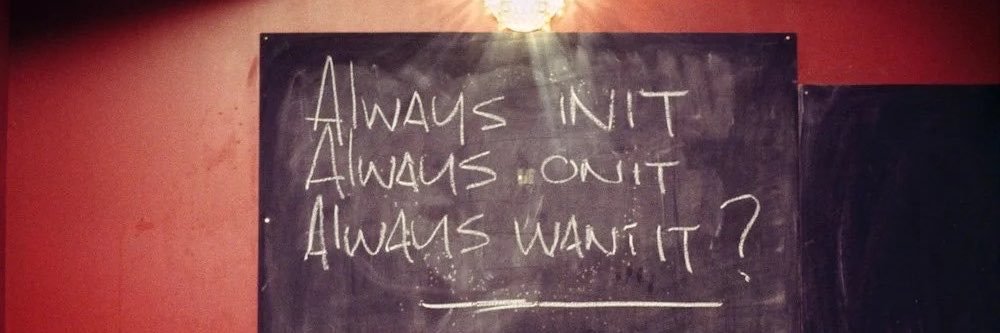 Always INIT
Always ONIT
Always WANT IT?